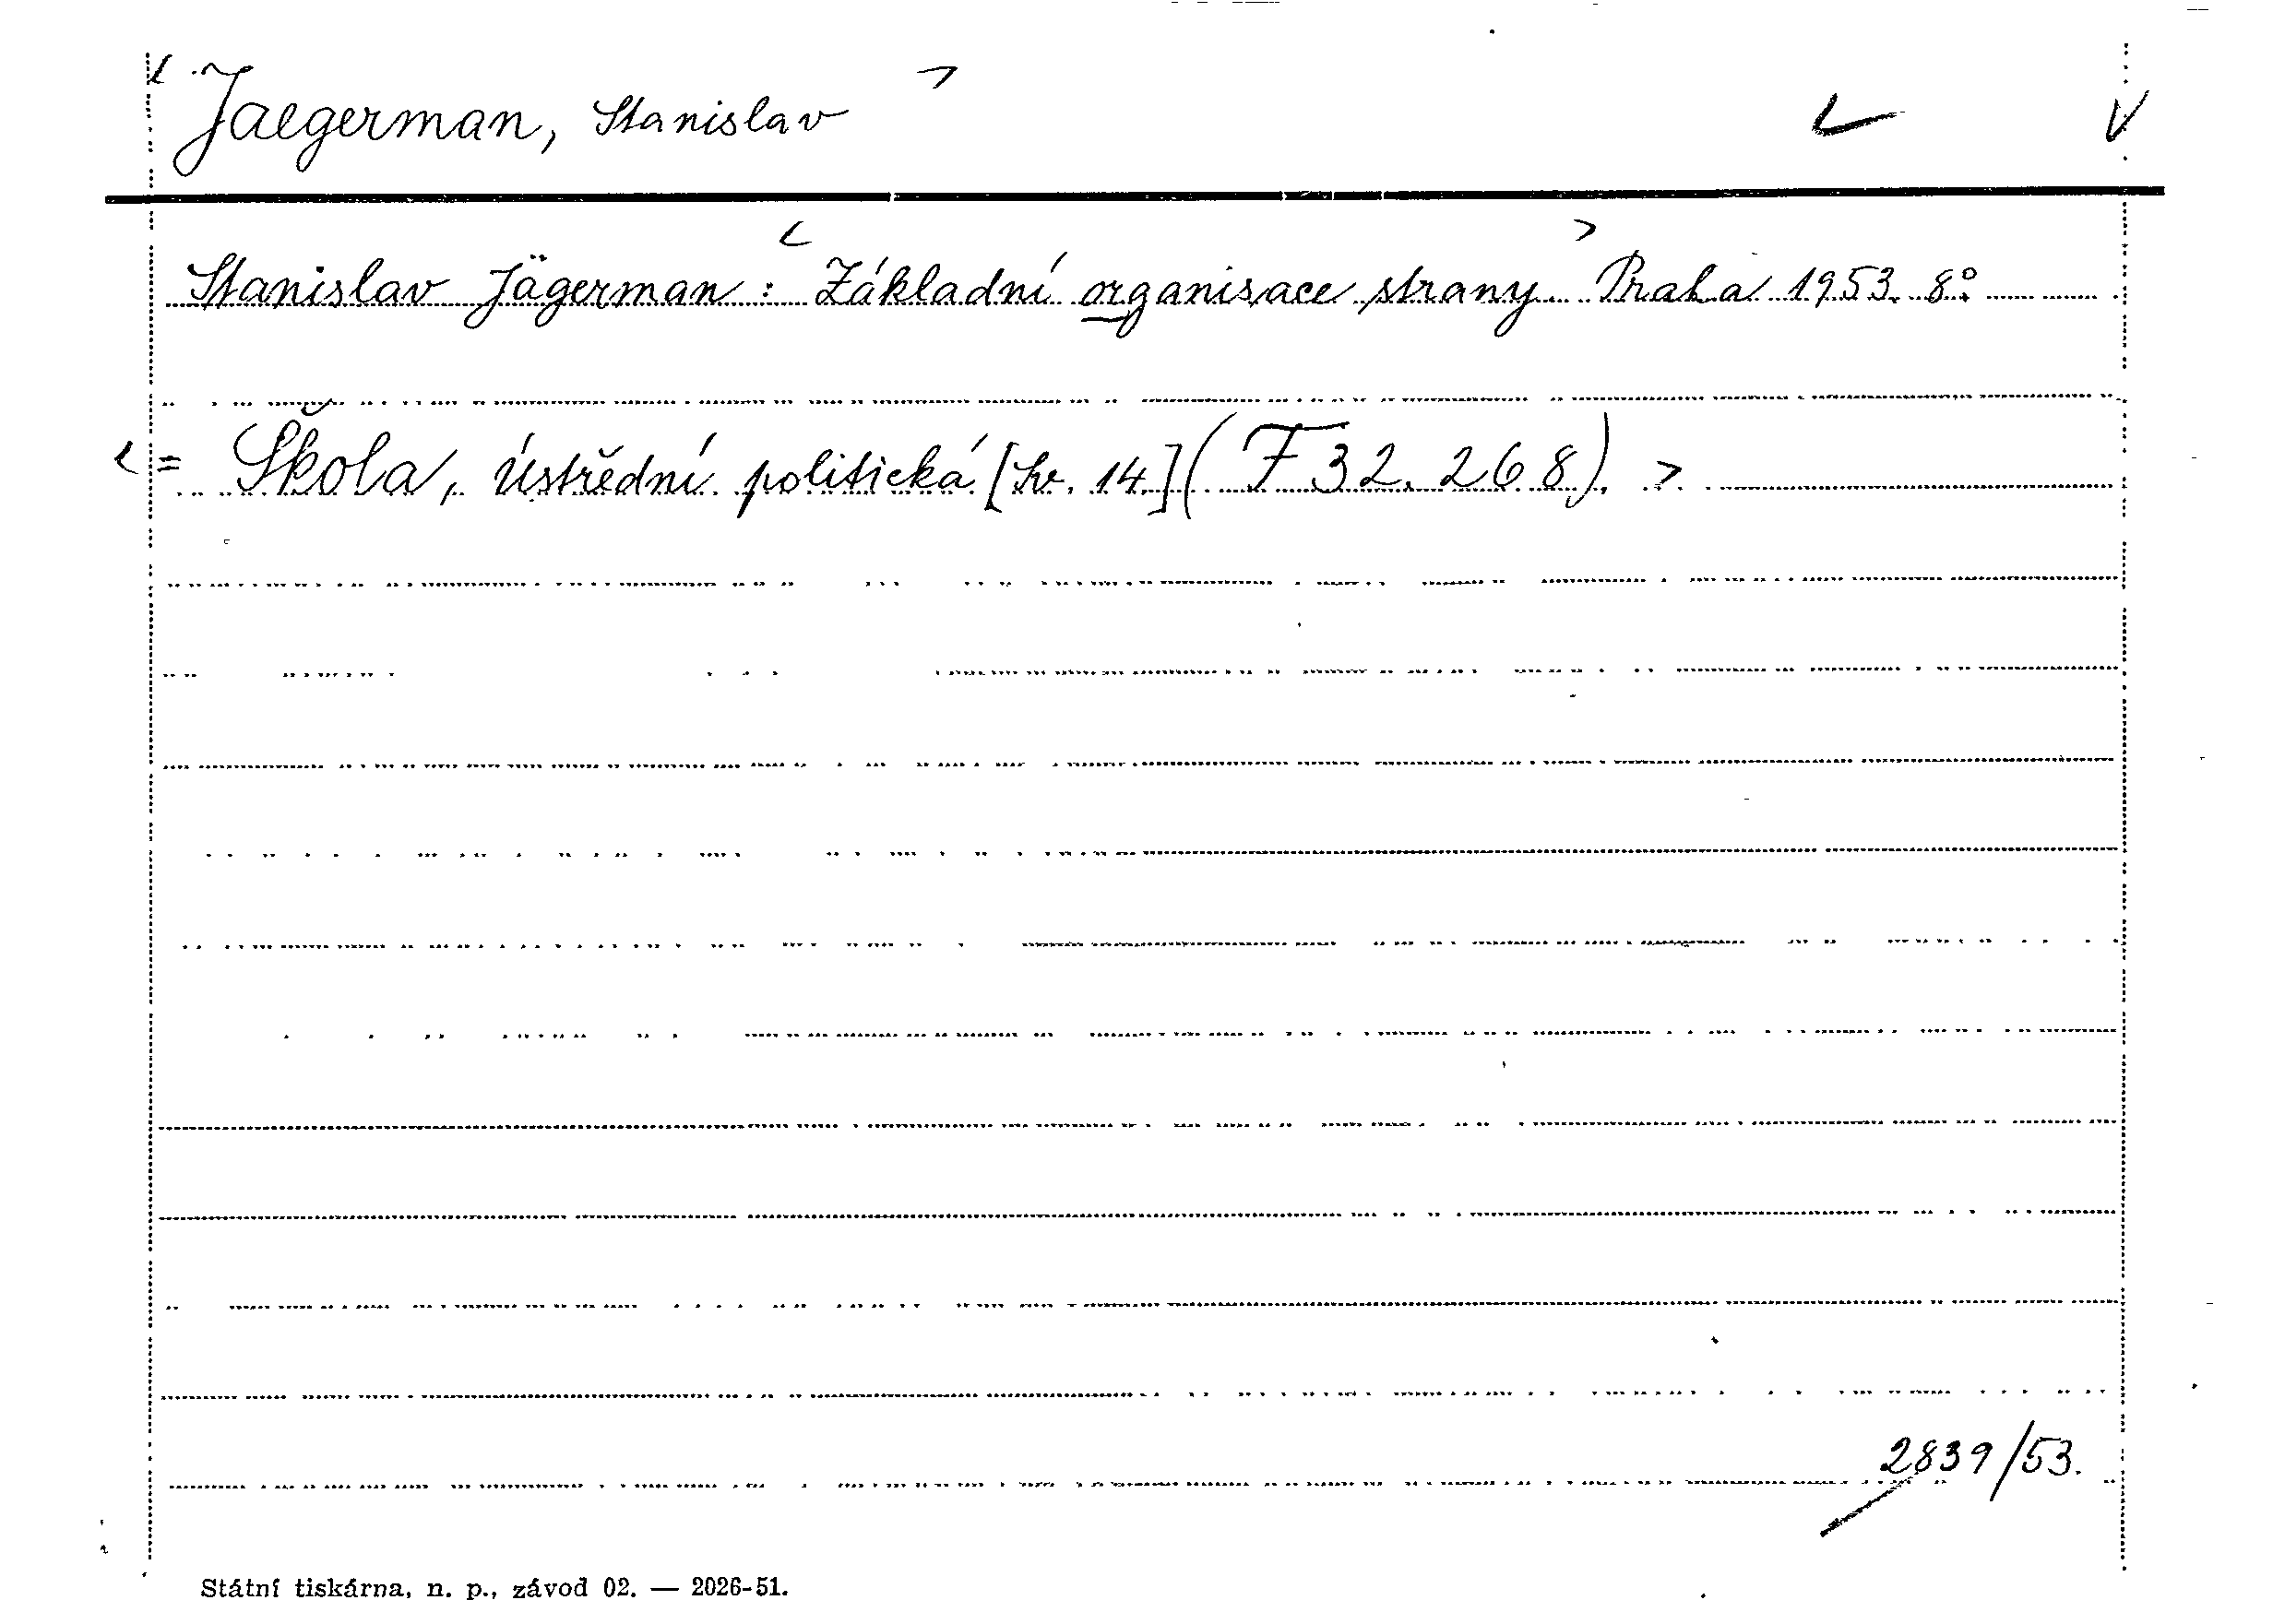 < Jaegerman, Stanislav >
Stanislav Jägerman: < Základní organisace strany > Praha 1953. 8°.
< = Škola, ústřední politická [Sv. 14] (F 32.268). >
2839/53.
Státní tiskárna, n. p., závod 02. — 2026-51.